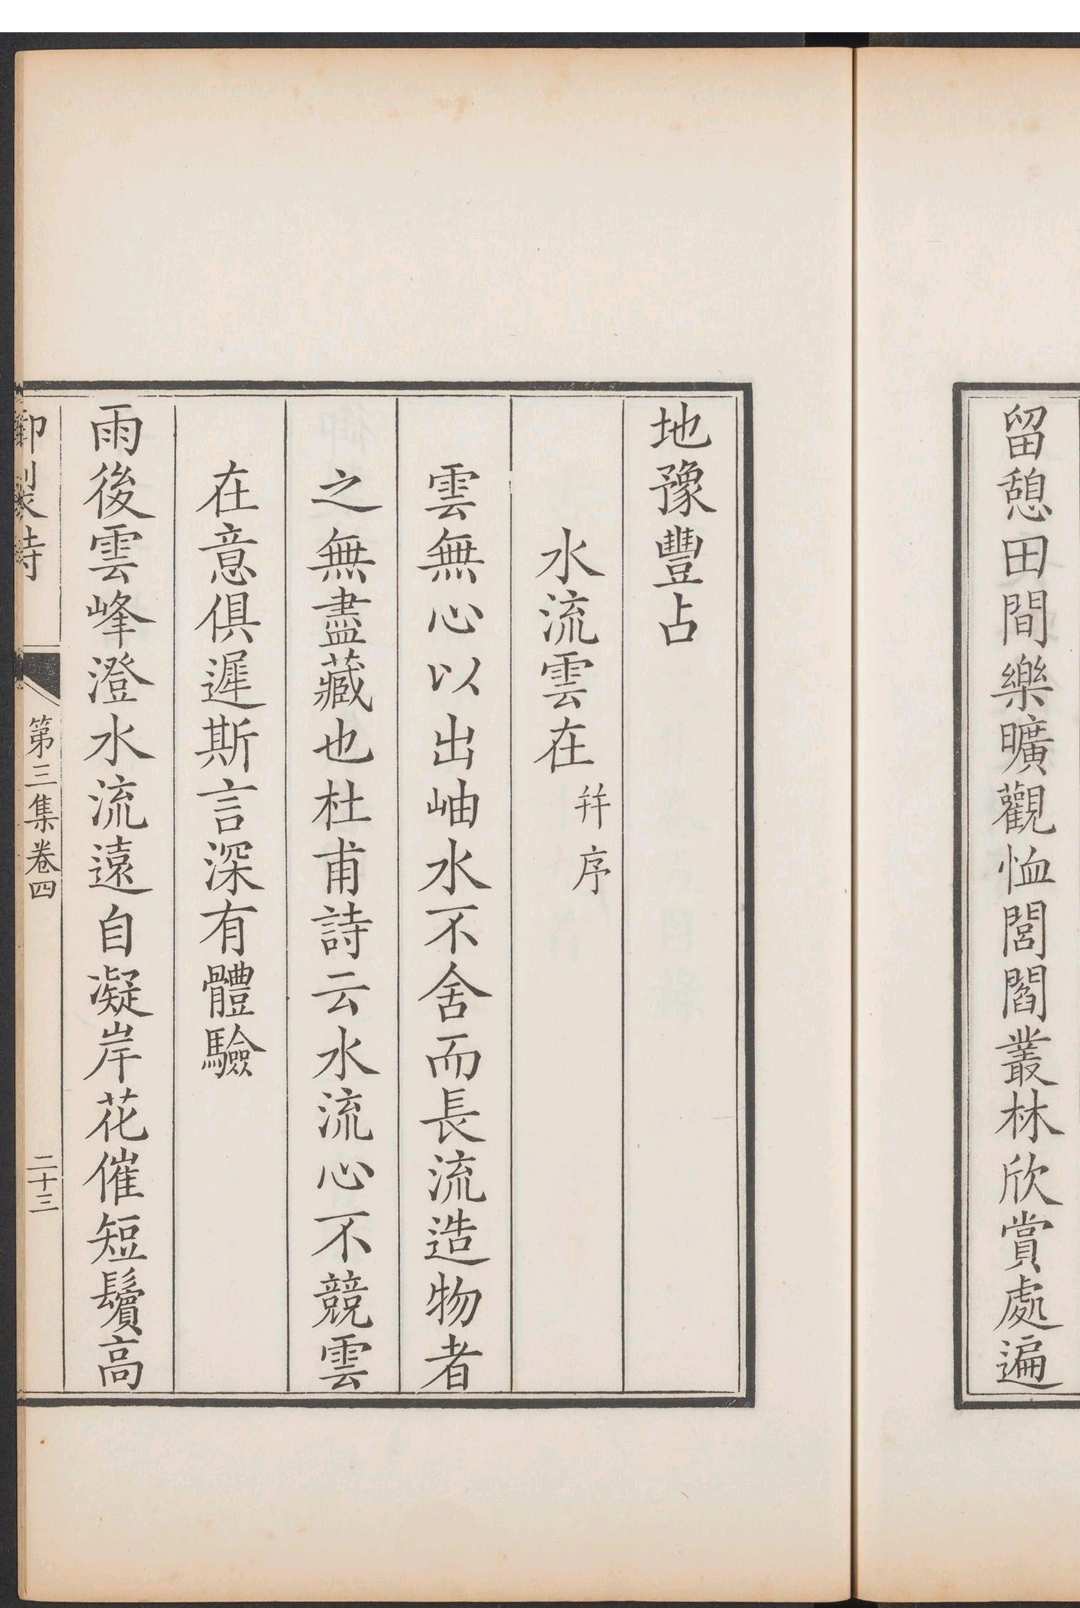 留憩田間樂曠觀恤閭閻叢林欣賞處遍
地豫豐占
水流雲在
并序
雲無心以出岫水不舍而長流造物者
之無盡藏也杜甫詩云水流心不競雲
在意俱遲斯言深有體驗
雨後雲峰澄水流遠自凝岸花催短鬢高
御製詩
第三集卷四
二十三